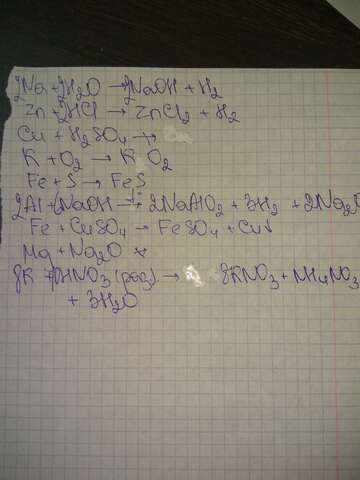 2Na + 2H₂O → 2NaOH + H₂
Zn + 2HCl → ZnCl₂ + H₂
Cu + H₂SO₄ ↛
K + O₂ → K O₂
Fe + S → FeS
2Al + 6NaOH → 2NaAlO₂ + 3H₂ + 2Na₂O
Fe + CuSO₄ → FeSO₄ + Cu↓
Mg + Na₂O ↛
8K + 10HNO₃ (раз) → 8KNO₃ + NH₄NO₃
+ 3H₂O